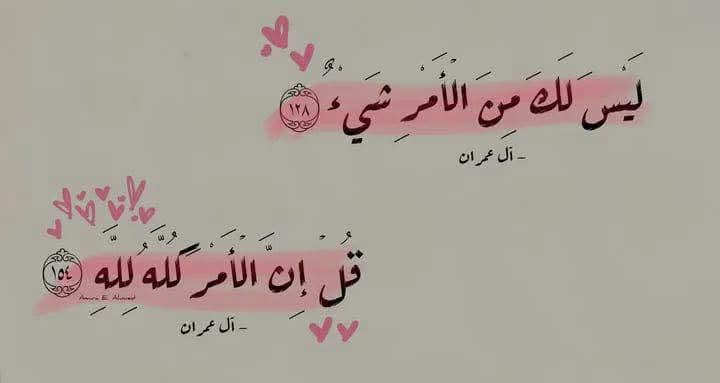 لَيْسَ لَكَ مِنَ الْأَمْرِ شَيْءٌ ١٢٨
- آل عمران
قُلْ إِنَّ الْأَمْرَ كُلَّهُ لِلَّهِ ١٥٤
Amira E. Ahmed
- آل عمران